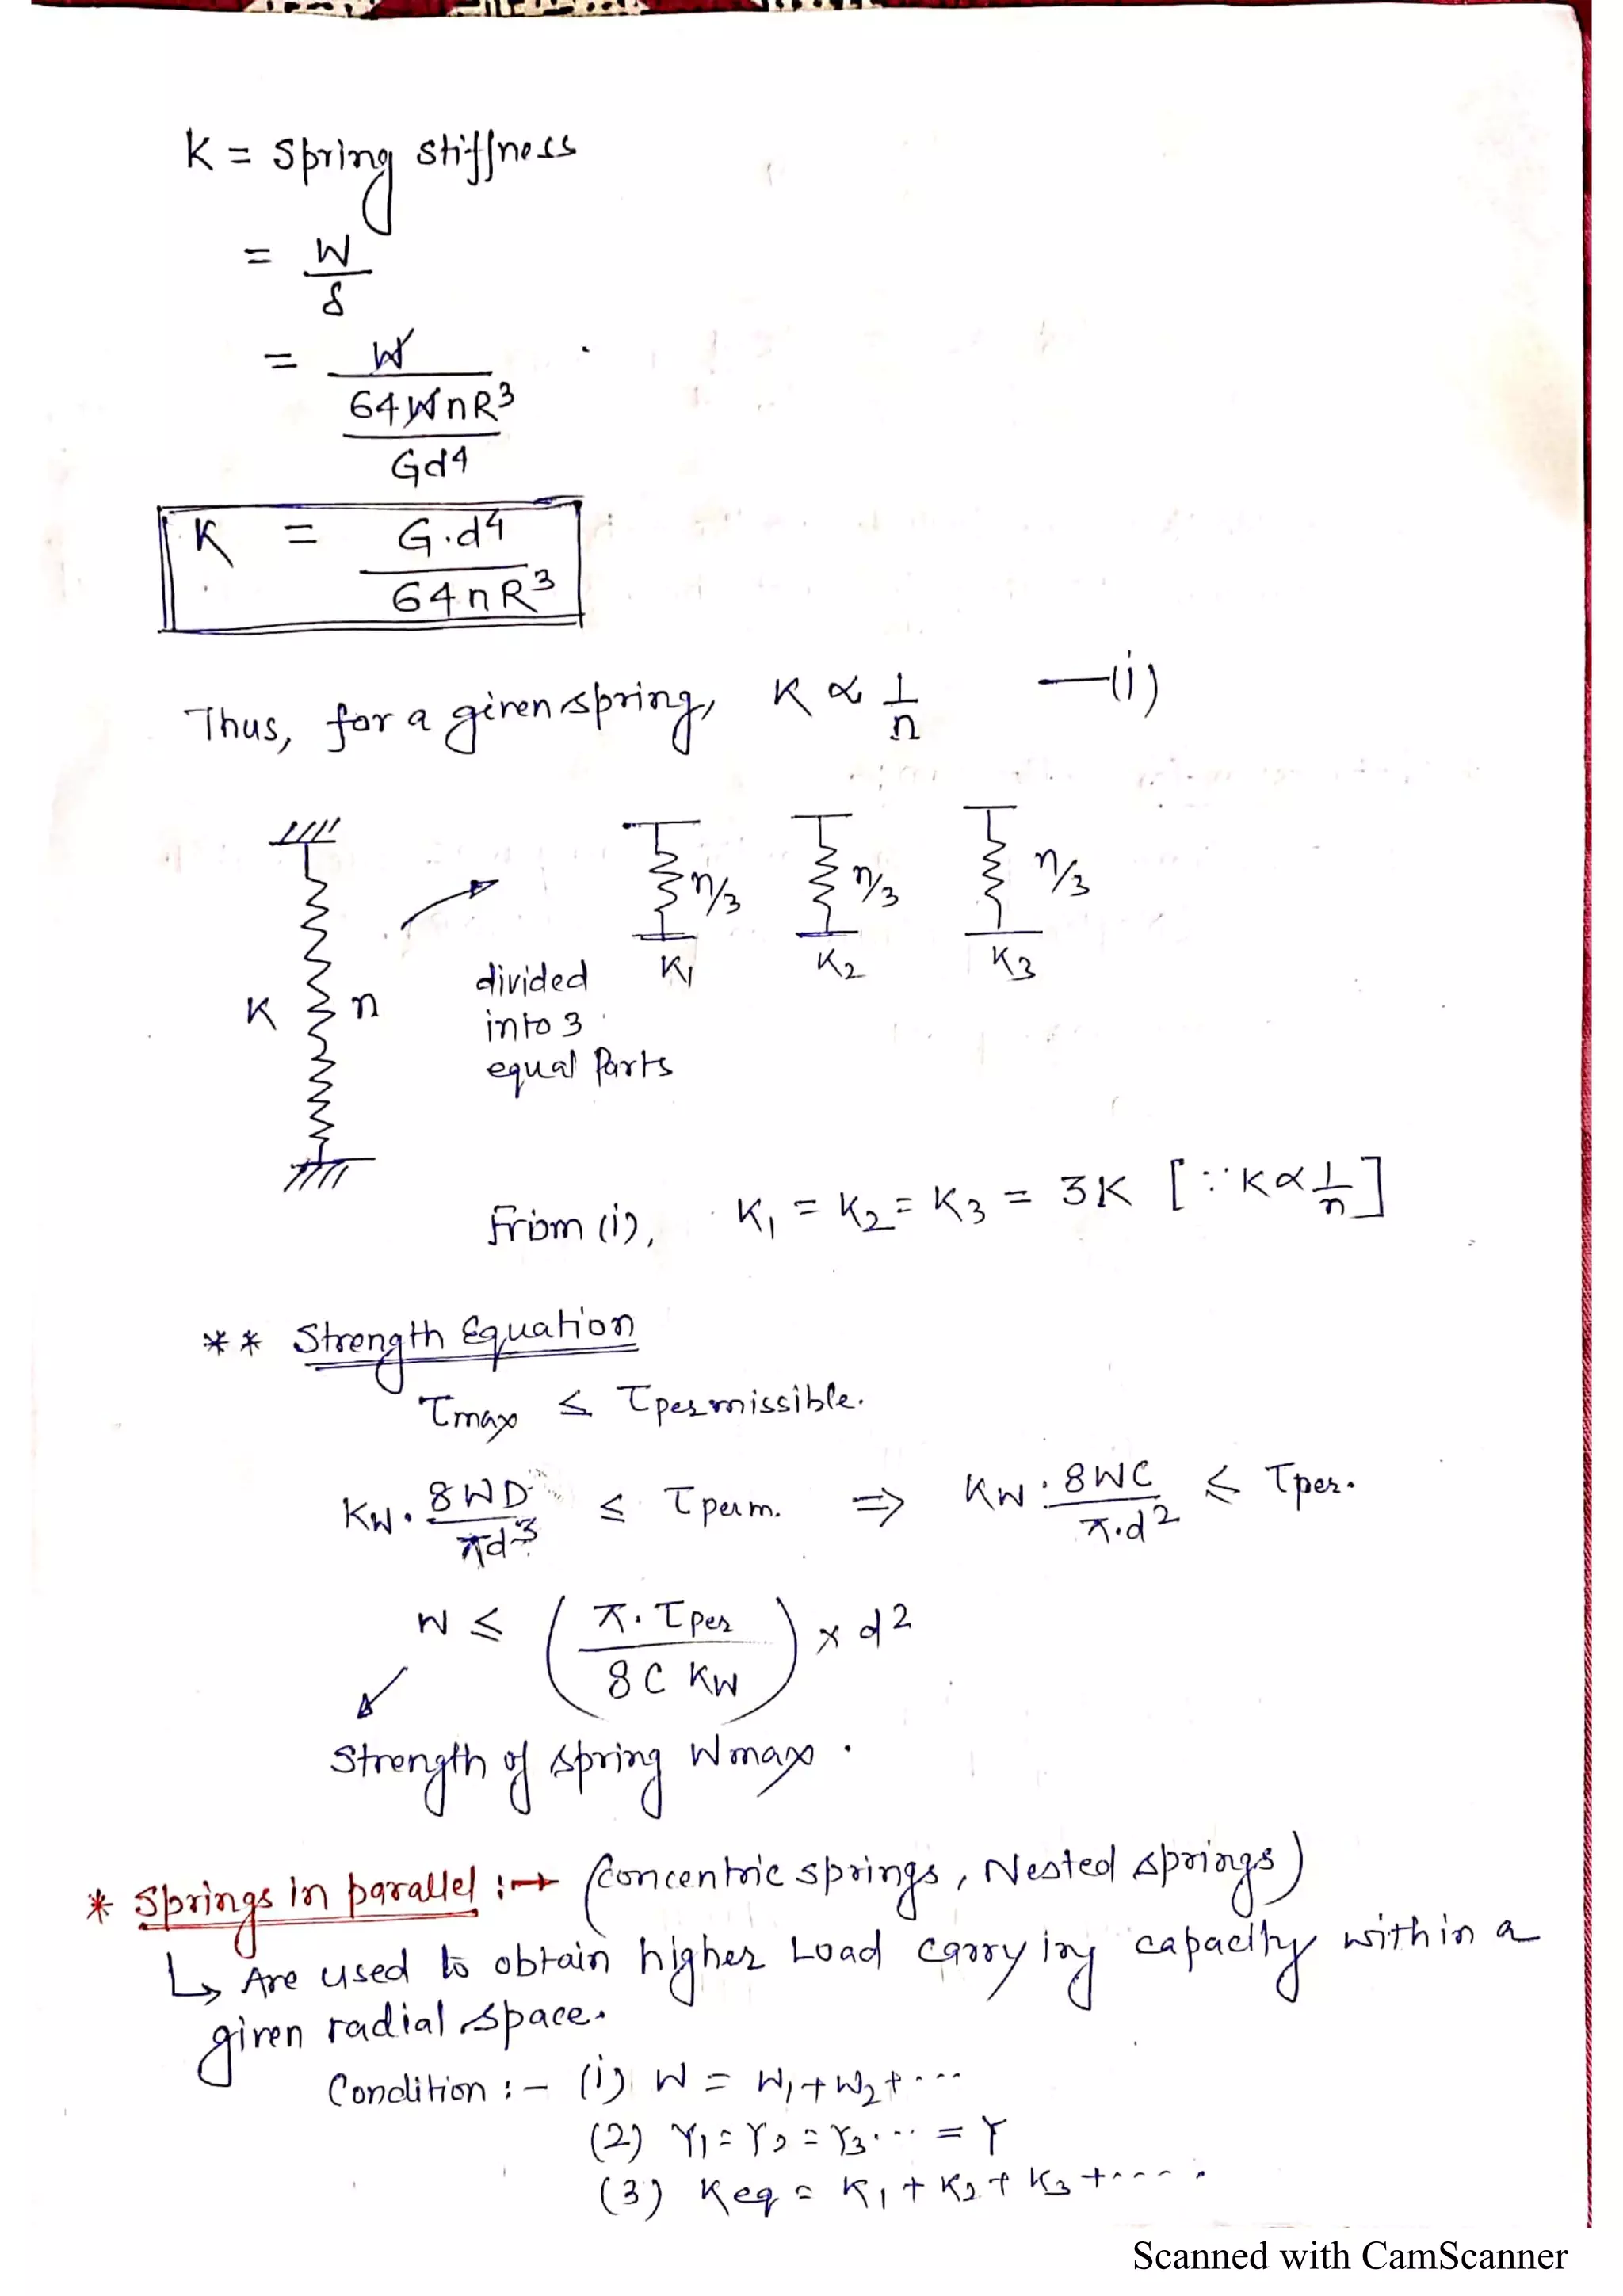 K = Spring stiffness
= W/δ
= W / (64WnR³ / Gd⁴)
K = G.d⁴ / 64nR³
Thus, for a given spring, K ∝ 1/n —(i)
n/3 n/3 n/3
K₁ K₂ K₃
K n
divided
into 3
equal Parts
From (i), K₁ = K₂ = K₃ = 3K [∵ K ∝ 1/n]
** Strength Equation
τmax ≤ τpermissible.
Kw. 8WD/πd³ ≤ τperm. ⇒ Kw. 8WC/π.d² ≤ τper.
W ≤ (π. τper / 8C Kw) × d²
Strength of spring Wmax.
* Springs in parallel :→ (Concentric springs, Nested springs)
↳ Are used to obtain higher Load carrying capacity within a
given radial space.
Condition :- (i) W = W₁+W₂+....
(2) Y₁ = Y₂ = Y₃.... = Y
(3) Keq = K₁ + K₂ + K₃ +.....
Scanned with CamScanner